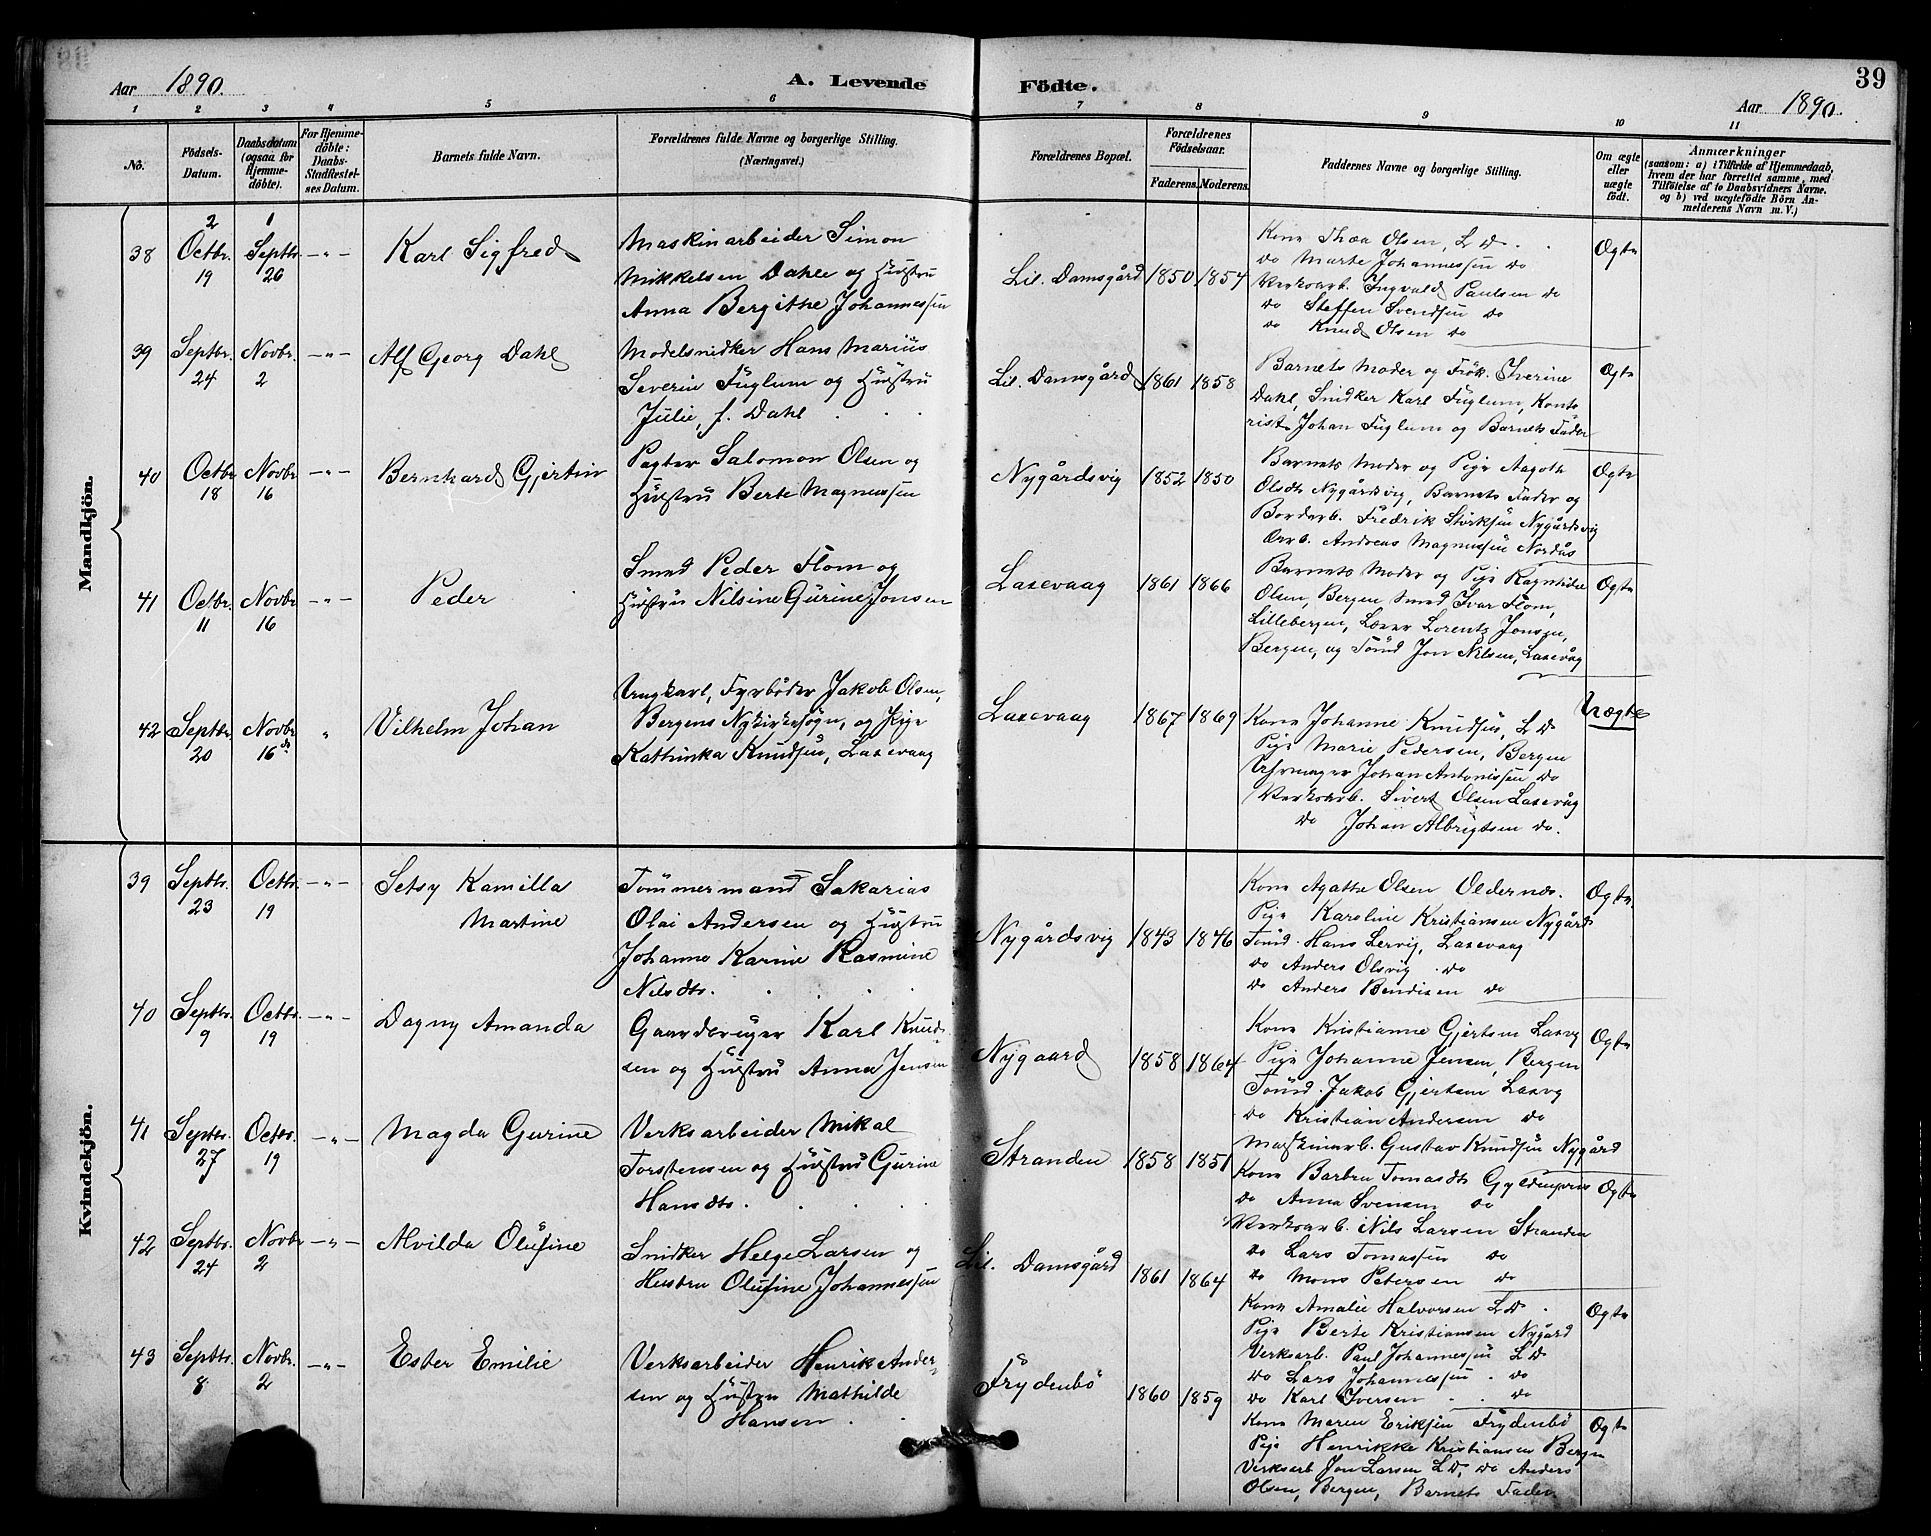 39
Aar 1890. A. Levende Födte. Aar 1890.
1 2 3 4 5 6 7 8 9 10 11
No.
Födsels-Datum.
Daabsdatum (ogsaa for Hjemmedöbte).
For Hjemmedöbte: Daabs-Stadfæstelses Datum.
Barnets fulde Navn.
Forældrenes fulde Navne og borgerlige Stilling.
(Næringsvei.)
Forældrenes Bopæl.
Forældrenes Födselsaar.
Faderens. Moderens.
Faddernes Navne og borgerlige Stilling.
Om ægte eller uægte födt.
Anmærkninger
(saasom: a) i Tilfælde af Hjemmedaab,
hvem der har forrettet samme, med
Tilföielse af to Daabsvidners Navne.
og b) ved uægtefödte Börn Anmelderens Navn m. V.)
Mandkjön.
38 2 Octbr. 19 1 Septbr. 26 -„- Karl Sigfred
Maskinarbeider Simon
Mikkelsen Dahle og Hustru
Anna Bergithe Johannessen
Lil. Damsgård 1850 1854
Kone Thea Olsen, L D.
do Marte Johannessen do
Verksarb. Ingvald Paulsen do
do Steffen Svendsen do
do Knud Olsen do
Ægte
39 Septbr. 24 Novbr. 2 -„- Alf Georg Dahl
Modelsnidker Hans Marius
Severin Fuglum og Hustru
Julie, f. Dahl
Lil. Damsgård 1861 1858
Barnets Moder og Frök. Iverine
Dahl, Snidker Karl Fuglum, Konto
rist Johan Fuglum og Barnets Fader
Ægte
40 Octbr 18 Novbr 16 -„- Bernhard Gjertin
Pagter Salomon Olsen og
Hustru Berte Magnessen
Nygårdsvig 1852 1850
Barnets Moder og Pige Aagoth
Olsdt Nygårdsvig, Barnets Fader og
Bordarb. Fredrik Störksen Nygårdsvig
Arb. Andreas Magnussen Nordås
Ægte
41 Octbr. 11 Novbr 16 -„- Peder
Smed Peder Flom og
Hustru Nilsine Gurine Jonsen
Laxevaag 1861 1866
Barnets Moder og Pige Ragnhilde
Olsen, Bergen Smed Ivar Flom,
Lillebergen, Lærer Lorentz Jonsen,
Bergen, og Tömd Jon Nilsen, Laxevåg
Ægte
42 Septbr. 20 Novbr 16 „ Vilhelm Johan
Ungkarl, Fyrböder Jakob Olsen,
Bergens Nykirkesogn, og Pige
Kathinka Knudsen, Laxevaag
Laxevaag 1867 1869
Kone Johanne Knudsen, L D
Pige Marie Pedersen, Bergen
Uhrmager Johan Antonissen do
Verksarb. Sivert Olsen Laxevåg
do Johan Albrigtsen do.
Uægte
Kvindekjön.
39 Septbr. 23 Octbr. 19 -„- Setsy Kamilla
Martine
Tömmermand Sakarias
Olai Andersen og Hustru
Johanne Karine Rasmine
Nilsdtr.
Nygårdsvig 1843 1846
Kone Agathe Olsen Oldernæs.
Pige Karoline Kristiansen Nygård
Tömd. Hans Lervig, Laxevaag
do Anders Olsvig do
do Anders Bendixen do
Ægte.
40 Septbr. 9 Octbr. 19 -„- Dagny Amanda
Gaardbruger Karl Knud-
sen og Hustru Anna Jensen
Nygaard 1858 1864
Kone Kristianne Gjertsen Laxvg
Pige Johanne Jensen, Bergen
Tömd. Jakob Gjertsen Laxvg
do Kristian Andersen do
Maskinarb. Gustav Knudsen Nygård
Ægte
41 Septbr. 27 Octbr. 19 -„- Magda Gurine
Verksarbeider Mikal
Torstensen og Hustru Gurine
Hansdtr.
Stranden 1858 1851
Kone Barbra Tomasdtr Gyldenpris
do Anna Svensen do
Verksarb. Nils Larsen Stranden
do Lars Tomassen do
do Mons Petersen do
Ægte
42 Septbr. 24 Novbr 2 -„- Alvilda Olufine
Snidker Helge Larsen og
Hustru Olufine Johannessen
Lil. Damsgård 1861 1864
Kone Amalie Halvorsen L D.
Pige Berte Kristiansen Nygård
Verksarb. Paul Johannessen L D
do Lars Johannessen do
do Karl Iversen do
Ægte
43 Septbr. 8 Novbr. 2 -„- Ester Emilie
Verksarbeider Henrik Ander-
sen og Hustru Mathilde
Hansen
Frydenbö 1860 1859
Kone Maren Eriksen Frydenbö
Pige Henrikke Kristiansen Bergen
Verksarb Jon Larsen L D, do Anders
Olsen, Bergen, Barnets Fader.
Ægte